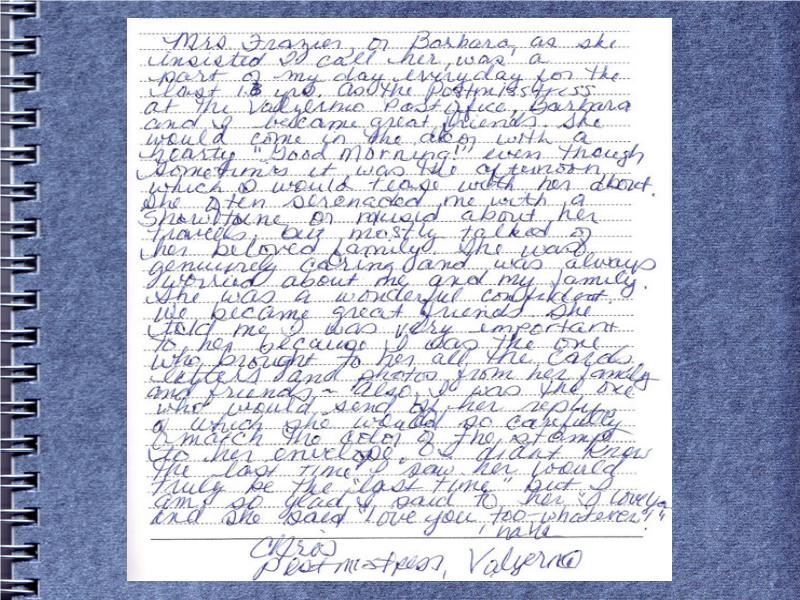 Mrs Frazier, or Barbara, as she
insisted I call her, was a
part of my day everyday for the
last 13 yrs. As the Postmisstress
at the Valyermo Post Office, Barbara
and I became great friends. She
would come in the door with a
hearty "Good Morning!" even though
sometimes it was the afternoon
which I would tease with her about.
She often serenaded me with a
Showtune or mused about her
travels, but mostly talked of
her beloved family. She was
genuinely caring and was always
worried about me and my family.
She was a wonderful confident.
We became great friends. She
told me I was very important
to her because I was the one
who brought to her all the cards
letters and photos from her family
and friends - also, I was the one
who would send off her replys
of which she would so carefully
match the color of the stamps
to her envelope. I didnt know
the last time I saw her would
truly be the "last time" but I
am so glad I said to her "I love you"
and she said "love you too-whatever!"
haha
Chris
Postmistress, Valyermo